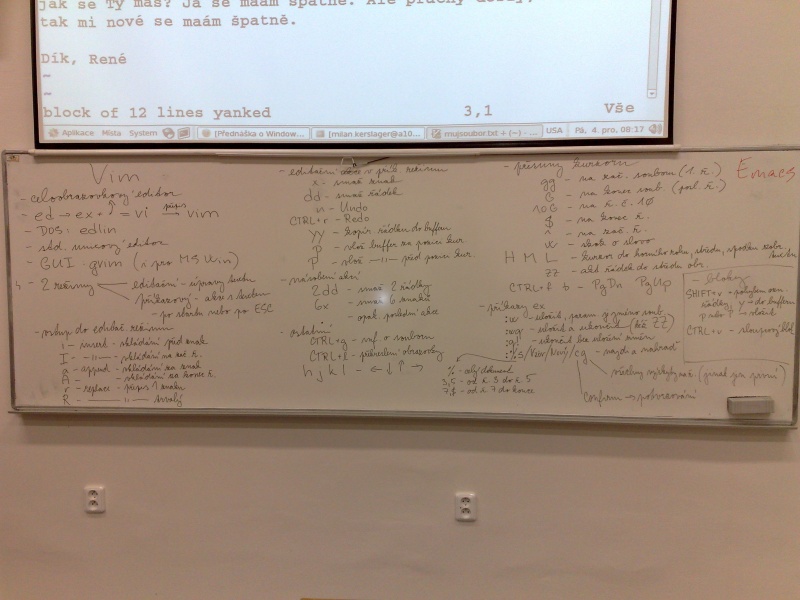 jak se Ty máš? Já se maám špatně. Ale
tak mi nové se maám špatně.
Dík, René
~
~
block of 12 lines yanked 3,1 Vše
Aplikace Místa System [Přednáška o Window... [milan.kerslager@a10... mujsoubor.txt + (~) - ... USA Pá, 4. pro, 08:17
Vim
- celoobrazovkový editor
- ed → ex + = vi → vim
- DOS: edlin
- std. unixový editor
- GUI - gvim (i pro MS Win)
- 2 režimy editační - úpravy textu
příkazový - akce s textem
- po startu nebo po ESC
- vstup do editač. režimu
i - insert - vkládání před znak
I - —||— - vkládání na zač. ř.
a - append - vkládání za znak
A - vkládání na konec ř.
r - replace - přepis 1 znaku
R - —||— trvalý
- editační akce v přík. režimu
x - smaž znak
dd - smaž řádek
u - Undo
CTRL+r - Redo
yy - kopír. řádku do bufferu
p - vlož buffer za pozici kur.
P - vlož —||— před pozici kur.
- násobení akcí
2dd - smaž 2 řádky
6x - smaž 6 znaků
. - opak. poslední akce
- ostatní
CTRL+g - inf. o souboru
CTRL+l - překreslení obrazovky
h j k l - ← ↓ ↑ →
- přesuny kurzoru
gg - na zač. souboru (1. ř.)
G - na konec soub. (posl. ř.)
10G - na ř. č. 10
$ - na konec ř.
^ - na zač. ř.
w - skok o slovo
H M L - kurzor do horního rohu, středu, spodku
zz - akt. řádek do středu obr.
CTRL+f b - PgDn PgUp
- příkazy ex
:w - uložit, param. je jméno soub.
:wq - uložit a ukončit (též ZZ)
:q! - ukončit bez uložení změn
:%s/Vim/Nový/cg - najdi a nahraď
všechny výskyty na ř. (jinak jen první)
confirm → potvrzování
% - celý dokument
3,5 - od ř. 3 do ř. 5
7,$ - od ř. 7 do konce
Emacs
- bloky
SHIFT+v + pohybem ozn.
řádky, y → do bufferu
p nebo P → vložit
CTRL+v - sloupcový blok